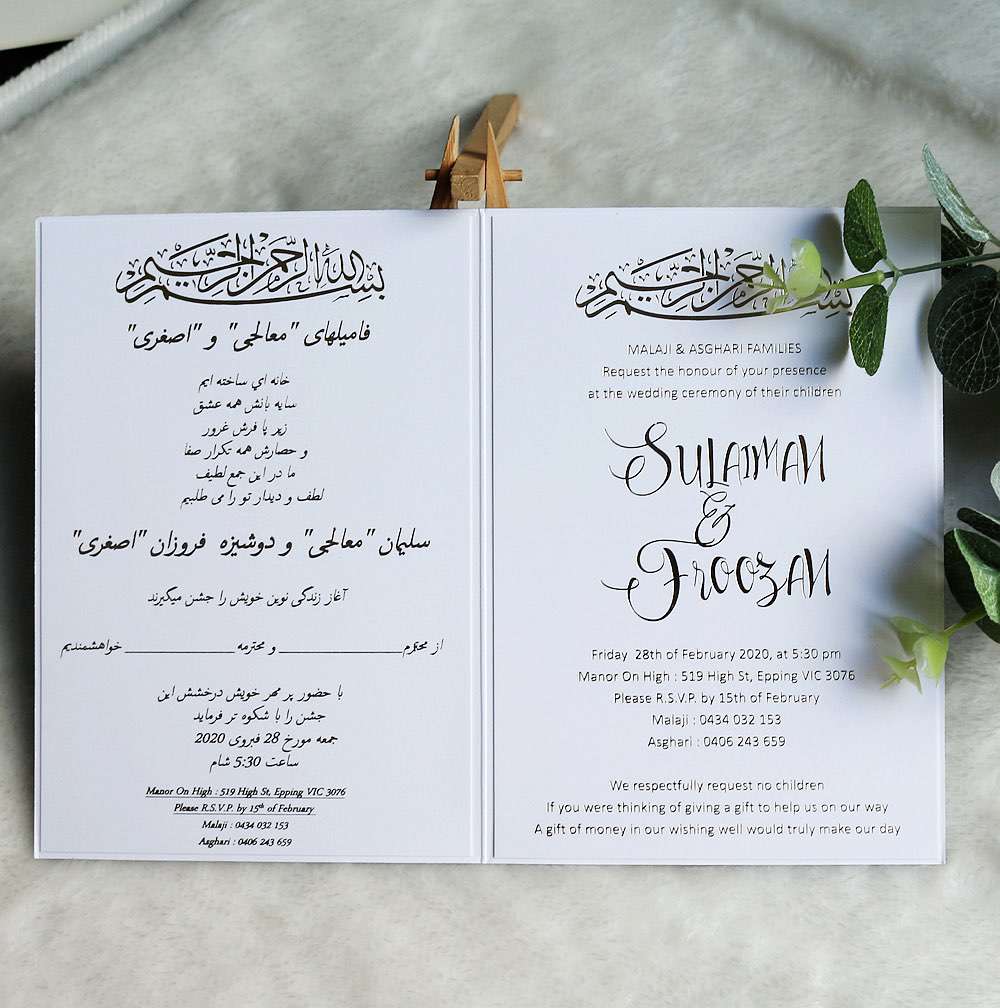 بسم الله الرحمن الرحیم
فامیلهای "معالجی" و "اصغری"
خانه اي ساخته ایم
سایه بانش همه عشق
زیر پا فرش غرور
و حصارش همه تکرار صفا
ما در این جمع لطیف
لطف و دیدار تو را می طلبیم
سلیمان "معالجی" و دوشیزه فروزان "اصغری"
آغاز زندگی نوین خویش را جشن میگیرند
از محترم______________ و محترمه______________ خواهشمندیم
با حضور پر مهر خویش درخشش این
جشن را با شکوه تر فرماید
جمعه مورخ 28 فبروی 2020
ساعت 5:30 شام
Manor On High : 519 High St, Epping VIC 3076
Please R.S.V.P. by 15th of February
Malaji : 0434 032 153
Asghari : 0406 243 659
بسم الله الرحمن الرحیم
MALAJI & ASGHARI FAMILIES
Request the honour of your presence
at the wedding ceremony of their children
SULAIMAN
&
FROOZAN
Friday 28th of February 2020, at 5:30 pm
Manor On High : 519 High St, Epping VIC 3076
Please R.S.V.P. by 15th of February
Malaji : 0434 032 153
Asghari : 0406 243 659
We respectfully request no children
If you were thinking of giving a gift to help us on our way
A gift of money in our wishing well would truly make our day